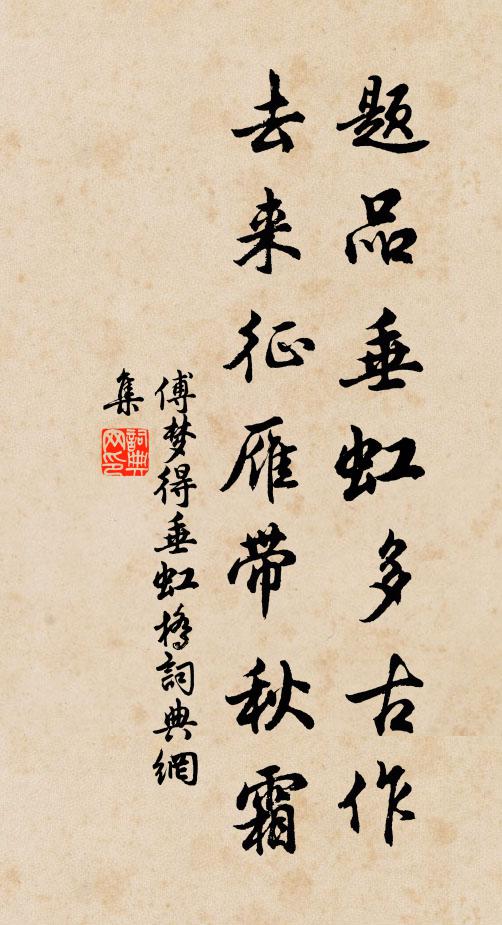 题品垂虹多古作
去来征雁带秋霜
傅梦得垂虹桥詞典網
集
詞典網印